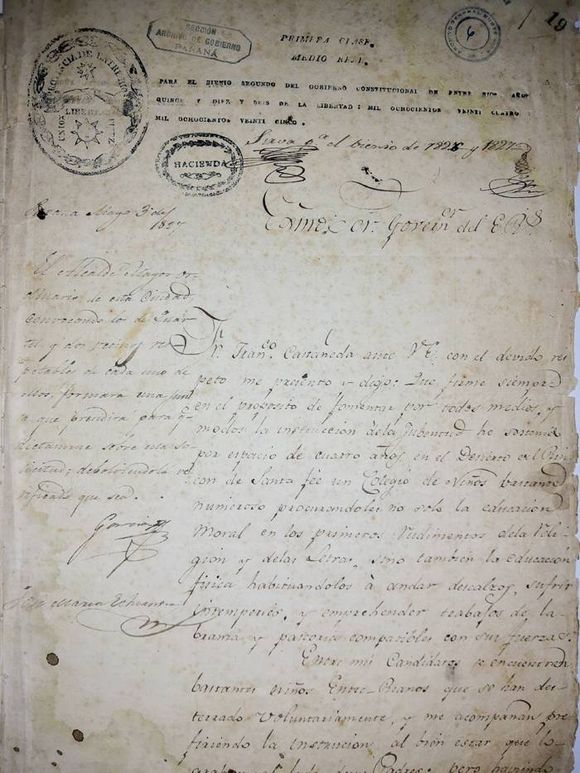 SECCIÓN
ARCHIVO DE GOBIERNO
PARANÁ
6
19
PRIMERA CLASE.
MEDIO REAL
PARA EL BIENIO SEGUNDO DEL GOBIERNO CONSTITUCIONAL DE ENTRE RIOS, AÑOS
QUINCE Y DIEZ Y SEIS DE LA LIBERTAD: MIL OCHOCIENTOS VEINTI CUATRO
MIL OCHOCIENTOS VEINTI CINCO.
PROVINCIA DE ENTRE RIOS
UNION LIBERTAD
HACIENDA
Sirva pª el bienio de 1826 y 1827
Mayo 3 de
1827
Exmo. Sor. Goveor. del E. Rs.
El Alcalde Mayor or
dinario de esta Ciudad,
convocando lo de Quar
tel, y dos vecinos res
petables de cada uno de
ellos, formara una junta
que precidirá para q.
dictamine sobre esta so
licitud; debolviendola ve
rificado que sea.
Fr. Franco. Castañeda ante V.E. con el devido res
peto me presento y digo: Que firme siempre
en el proposito de fomentar por todos medios, y
modos la instruccion dela Jubentud he sostenido
por espacio de cuatro años en el Decierto del Rin
con de Santa fée un Colegio de Niños bastante
numeroso procurandoles no solo la educacion
Moral en los primeros rudimentos dela Reli
gion y delas Letras, sino tambien la educacion
fisica habituandolos à andar descalzos, sufrir
intemperies, y emprehender trabajos de la
branza, y pastoria compatibles con sus fuerzas.
Entre mis Candidatos se encuentran
bastantes niños Entre-Rianos que se han des
terrado voluntariamente, y me acompañan pre
firiendo la instrucion al bien estar que lo
lado de sus Padres; pero